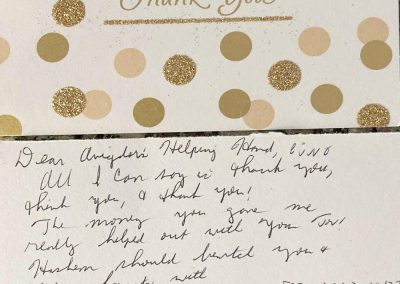 Thank You
Dear Avigdor's Helping Hand,
All I can say is thank you,
thank you, & thank you!
The money you gave me
really helped out with Yom Tov!
Hashem should bentch you &
with